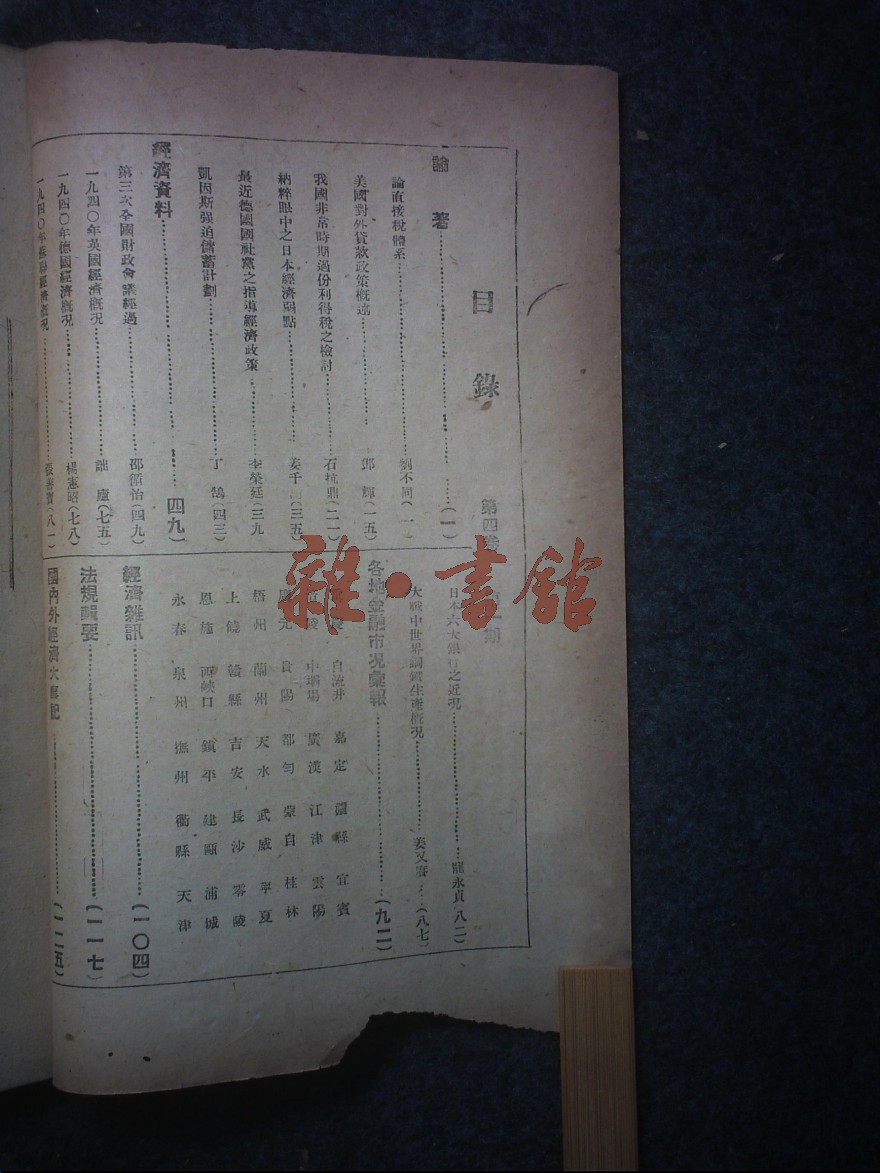 目錄
第四卷
論著 (一)
論直接稅體系 劉不同(一)
美國對外貸款政策概述 鄧輝(一五)
我國非常時期過份利得稅之檢討 石抗鼎(二一)
納粹眼中之日本經濟弱點 姜千(三五)
最近德國國社黨之指導經濟政策 李榮廷(三九
凱因斯强迫儲蓄計劃 丁鵠(四三)
經濟資料 (四九)
第三次全國財政會議經過 邵循怡(四九)
一九四〇年英國經濟概況 詘廬(七五)
一九四〇年德國經濟概況 楊憲昭(七八)
一九四〇年蘇聯經濟概況 張勝賓(八一)
日本六大銀行之近況 龍永貞(八二)
大戰中世界鋼鐵生產概況 (八七)
各地金融市况彙報 (九二)
自流井 嘉定 溫縣 宜賓
中壩場 廣漢 江津 雲陽
廣元 貴陽 都勻 蒙自 桂林
梧州 蘭州 天水 武威 寧夏
上饒 贛縣 吉安 長沙 零陵
恩施 西峽口 鎮平 建甌 浦城
永春 泉州 撫州 衢縣 天津
經濟雜訊 (一〇四)
法規輯要 (一一七)
國內外經濟大事記 (一二五)
雜·書館